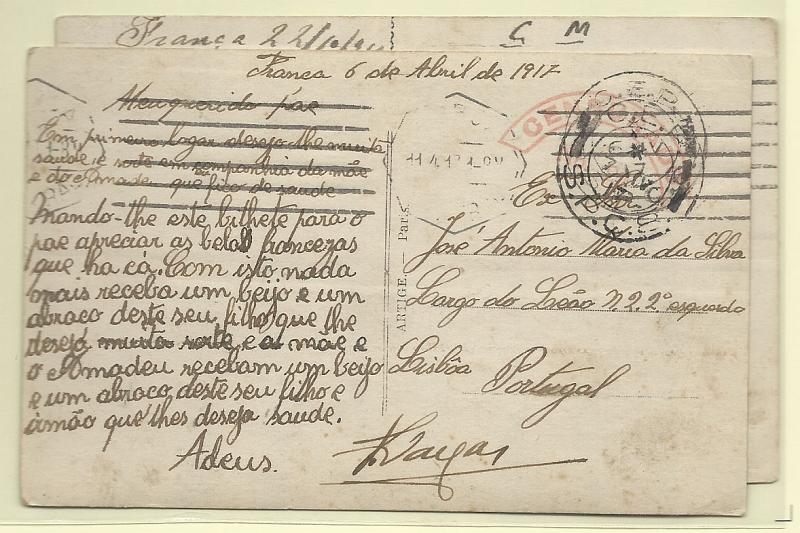 França 22/
C M
França 6 de Abril de 1917
Meu querido pae
Em primeiro logar desejo-lhe muita
saude, e sorte em companhia da mãe
e do Amadeu que eu fico de saude
Mando-lhe este bilhete para o
pae apreciar as belas francezas
que ha cá. Com isto nada
mais receba um beijo e um
abraco deste seu filho que lhe
deseja muita sorte, e a mãe e
o Amadeu recebam um beijo
e um abraço deste seu filho e
irmão que lhes deseja saude.
Adeus.
ARTIGE — Paris
José Antonio Maria da Silva
Largo do Leão n. 2 2º esquerdo
Lisbôa
Portugal